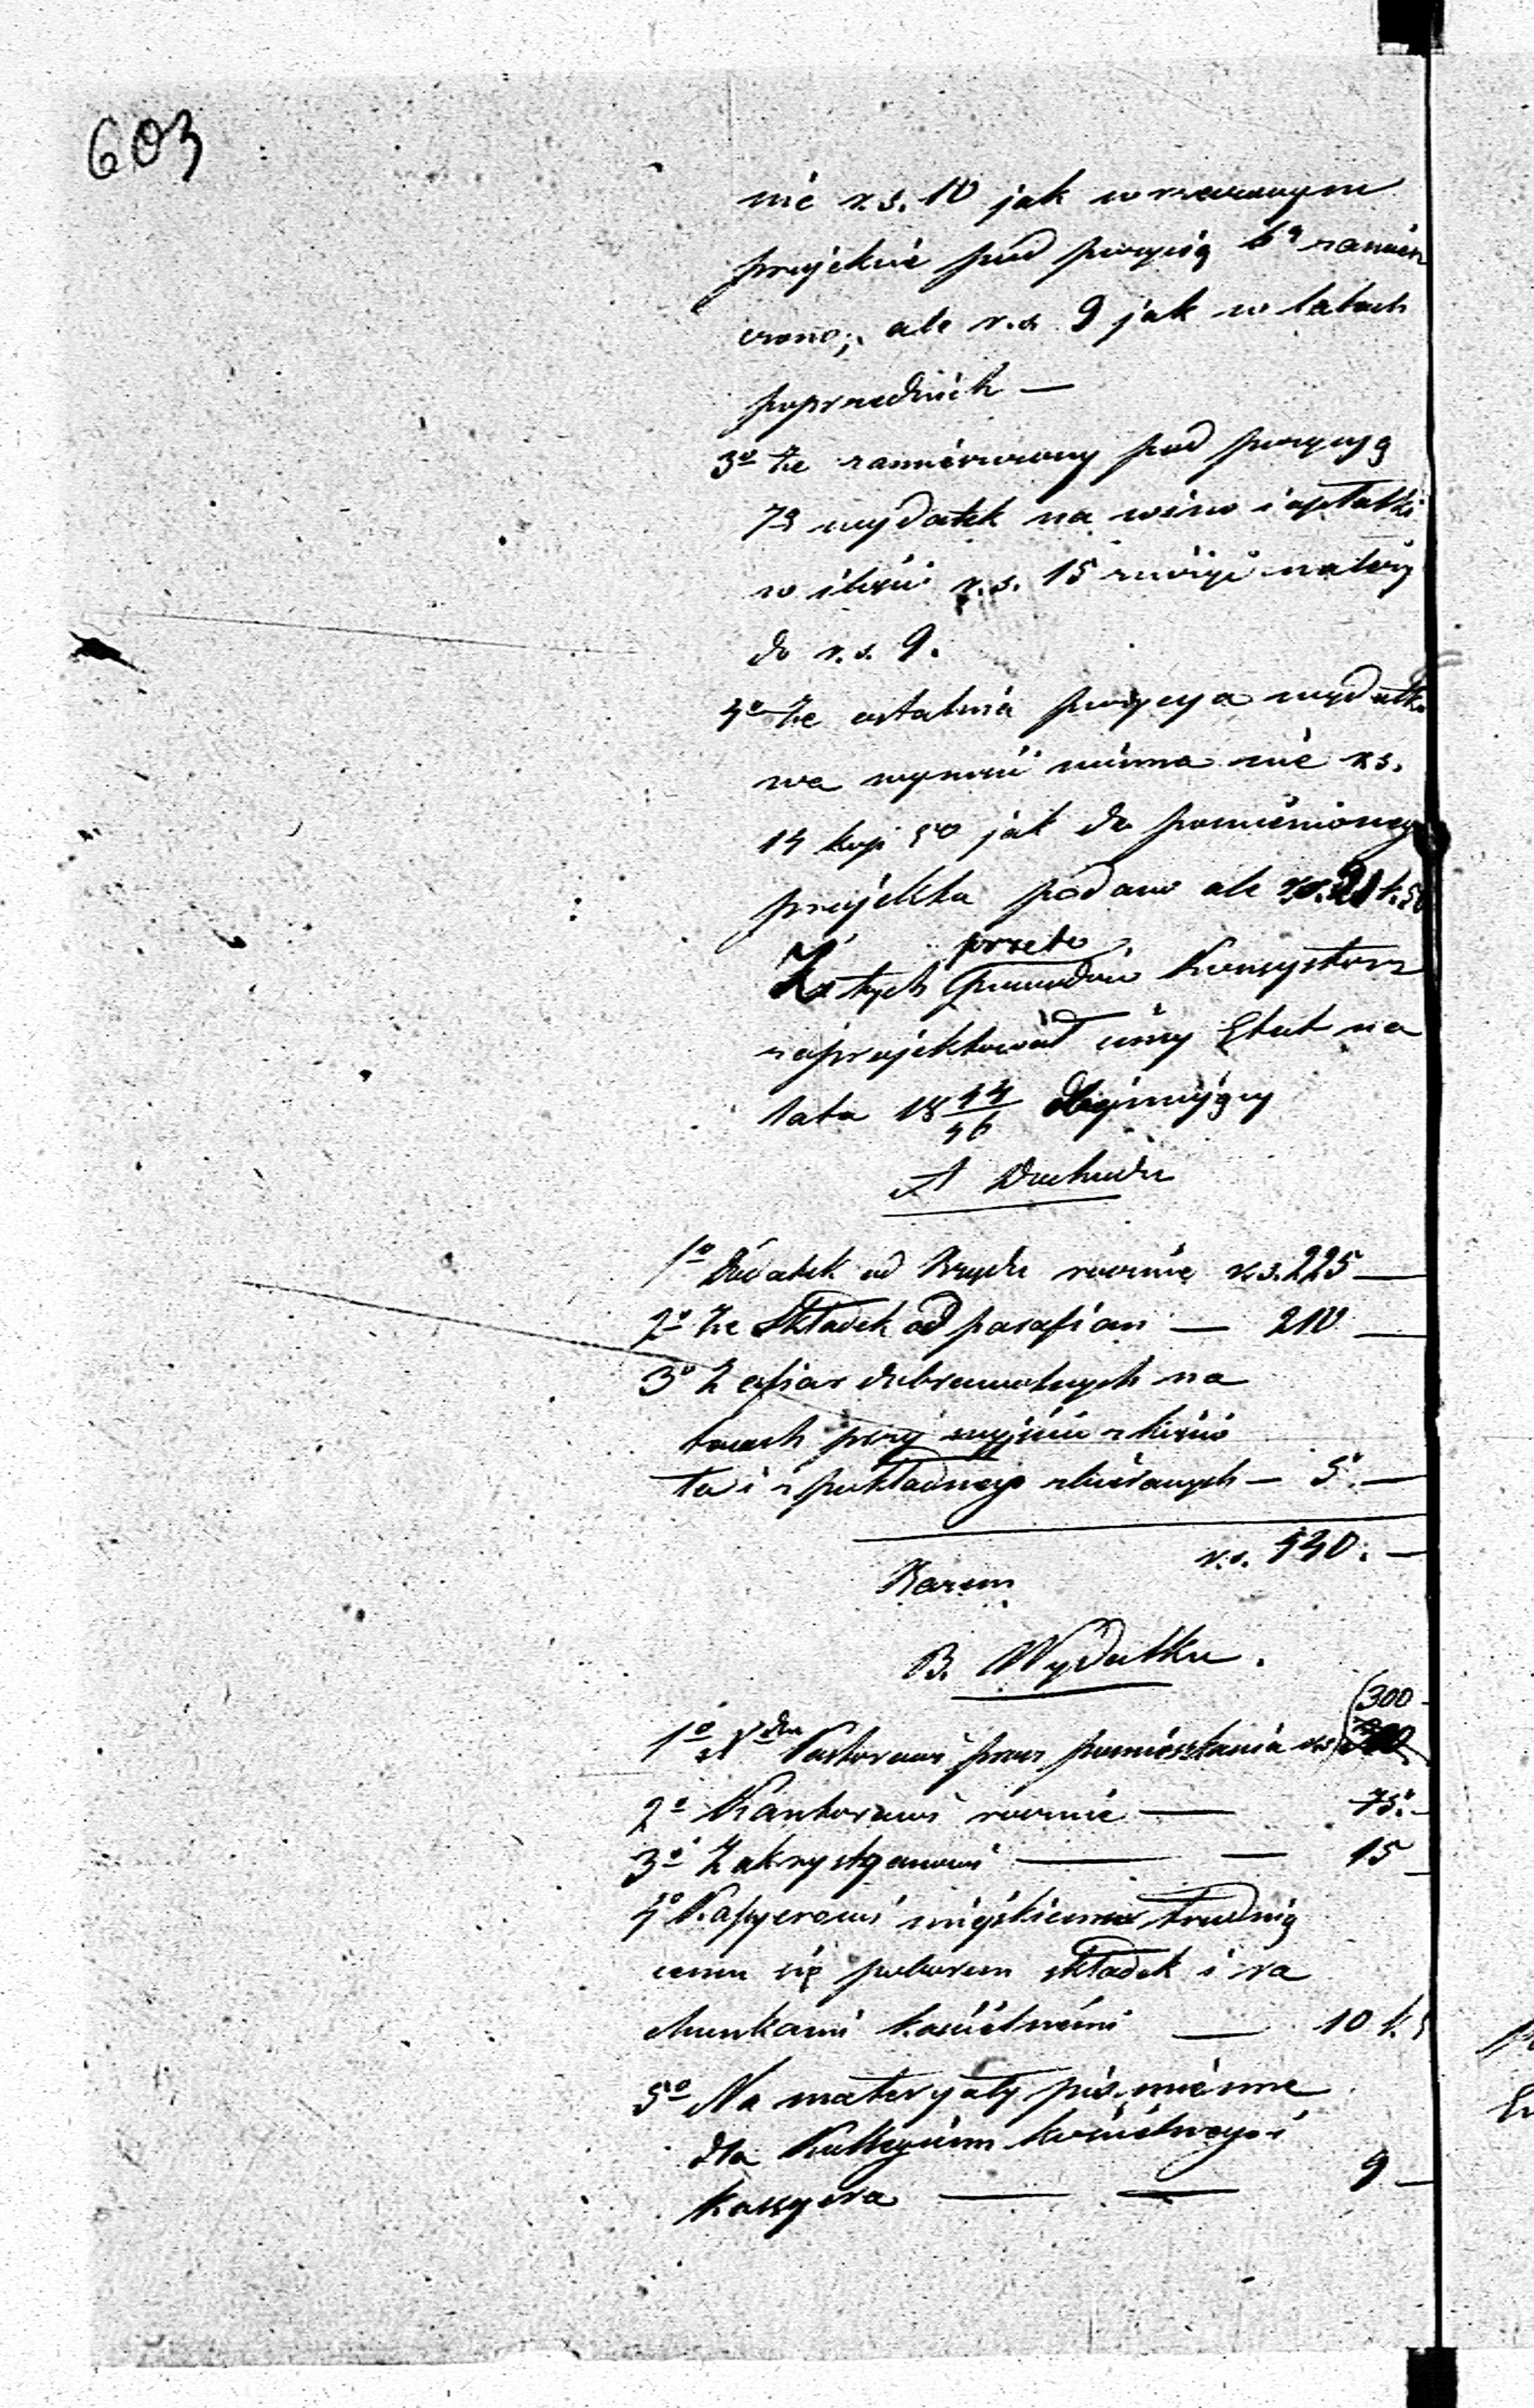 603
nie r.s. 10 jak w rzeczonym
projekcie pod pozycią 6ą zamiesz
czono; ale r.s. 9 jak w latach
poprzednich —
3o że zamieszczony pod pozycyą
7ą wydatek na wino i opłatki
w ilości r.s. 15 zniżyć należy
do r.s. 9.
4o że ostatnia pozycya wydatko
wa wynosić winna nie rs.
14 kop 50 jak do pomienionego
projektu podano ale rs. 21 k. 50
przeto
Z tych powodów Konsystorz
zaprojektował inny Etat na
lata 18 44/46 obejmujący
A Dochodu
1o Dodatek od Rządu rocznie r.s. 225 —
2o Ze Składek od parafian — 210 —
3o Z ofiar dobrowolnych na
tacach przy wyjściu z kościo
ła i z pokładnego zbieranych — 5. —
Razem r.s. 440. —
B. Wydatku.
300
1o dla Pastorowi prócz pomieszkania rs
2o Kantorowi rocznie — 75. —
3o Zakrystyanowi — — 15 —
4o Kassyerowi miejskiemu trudnią
cemu się poborem składek i ra
chunkami kościelnémi — 10 k. 5
5o Na materyały piśmienne
dla Kollegium kościelnego i
Kassyera — — 9 —